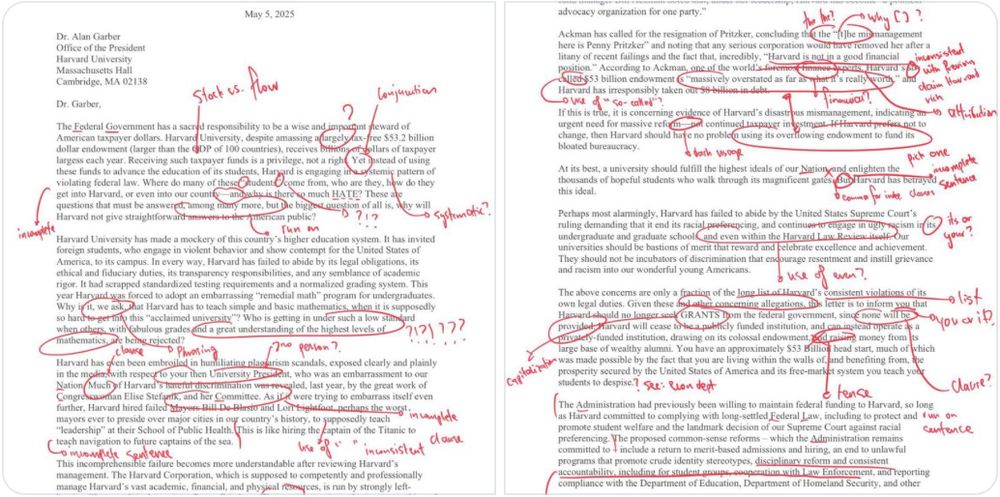 May 5, 2025
Dr. Alan Garber
Office of the President
Harvard University
Massachusetts Hall
Cambridge, MA 02138
Dr. Garber,
stock vs. flow
conjunction
?
The Federal Government has a sacred responsibility to be a wise and important steward of
American taxpayer dollars. Harvard University, despite amassing a largely tax-free $53.2 billion
dollar endowment (larger than the GDP of 100 countries), receives billions of dollars of taxpayer
largess each year. Receiving such taxpayer funds is a privilege, not a right. Yet instead of using
these funds to advance the education of its students, Harvard is engaging in a systemic pattern of
violating federal law. Where do many of these students come from, who are they, how do they
get into Harvard, or even into our country—and why is there so much HATE? These are
questions that must be answered, among many more, but the biggest question of all is, why will
Harvard not give straightforward answers to the American public?
incomplete
run on
?!?
systematic?
Harvard University has made a mockery of this country's higher education system. It has invited
foreign students, who engage in violent behavior and show contempt for the United States of
America, to its campus. In every way, Harvard has failed to abide by its legal obligations, its
ethical and fiduciary duties, its transparency responsibilities, and any semblance of academic
rigor. It had scrapped standardized testing requirements and a normalized grading system. This
year Harvard was forced to adopt an embarrassing "remedial math" program for undergraduates.
Why is it, we ask, that Harvard has to teach simple and basic mathematics, when it is supposedly
so hard to get into this "acclaimed university"? Who is getting in under such a low standard
when others, with fabulous grades and a great understanding of the highest levels of
mathematics, are being rejected?
?!?!???
clause
phrasing
?no person?
Harvard has even been embroiled in humiliating plagiarism scandals, exposed clearly and plainly
in the media, with respect to your then University President, who was an embarrassment to our
Nation. Much of Harvard's hateful discrimination was revealed, last year, by the great work of
Congresswoman Elise Stefanik, and her Committee. As if it were trying to embarrass itself even
further, Harvard hired failed Mayors Bill De Blasio and Lori Lightfoot, perhaps the worst
mayors ever to preside over major cities in our country's history, to supposedly teach
"leadership" at their School of Public Health. This is like hiring the captain of the Titanic to
teach navigation to future captains of the sea.
incomplete clause
incomplete sentence
use of " " inconsistent
This incomprehensible failure becomes more understandable after reviewing Harvard's
management. The Harvard Corporation, which is supposed to competently and professionally
manage Harvard's vast academic, financial, and physical resources, is run by strongly left-
advocacy organization for one party."
why [ ]?
Ackman has called for the resignation of Pritzker, concluding that the "[t]he mismanagement
here is Penny Pritzker" and noting that any serious corporation would have removed her after a
litany of recent failings and the fact that, incredibly, "Harvard is not in a good financial
position." According to Ackman, one of the world's foremost finance experts, Harvard's so-
called $53 billion endowment is "massively overstated as far as what it's really worth," and
Harvard has irresponsibly taken out $8 billion in debt.
inconsistent
with previous
claim Harvard
rich
use of "so-called"?
financiers?
attribution
If this is true, it is concerning evidence of Harvard's disastrous mismanagement, indicating an
urgent need for massive reform—not continued taxpayer investment. If Harvard prefers not to
change, then Harvard should have no problem using its overflowing endowment to fund its
bloated bureaucracy.
dash usage
pick one
At its best, a university should fulfill the highest ideals of our Nation, and enlighten the
thousands of hopeful students who walk through its magnificent gates. But Harvard has betrayed
this ideal.
incomplete
sentence
clauses
Perhaps most alarmingly, Harvard has failed to abide by the United States Supreme Court's
ruling demanding that it end its racial preferencing, and continues to engage in ugly racism in its
undergraduate and graduate schools, and even within the Harvard Law Review itself. Our
universities should be bastions of merit that reward and celebrate excellence and achievement.
They should not be incubators of discrimination that encourage resentment and instill grievance
and racism into our wonderful young Americans.
its or
your?
use of even?
The above concerns are only a fraction of the long list of Harvard's consistent violations of its
own legal duties. Given these and other concerning allegations, this letter is to inform you that
Harvard should no longer seek GRANTS from the federal government, since none will be
provided. Harvard will cease to be a publicly funded institution, and can instead operate as a
privately-funded institution, drawing on its colossal endowment, and raising money from its
large base of wealthy alumni. You have an approximately $53 Billion head start, much of which
was made possible by the fact that you are living within the walls of, and benefiting from, the
prosperity secured by the United States of America and its free-market system you teach your
students to despise.
list
capitalization
clause?
? see: Econ dept
tense
The Administration had previously been willing to maintain federal funding to Harvard, so long
as Harvard committed to complying with long-settled Federal Law, including to protect and
promote student welfare and the landmark decision of our Supreme Court against racial
preferencing. The proposed common-sense reforms – which the Administration remains
committed to – include a return to merit-based admissions and hiring, an end to unlawful
programs that promote crude identity stereotypes, disciplinary reform and consistent
accountability, including for student groups, cooperation with Law Enforcement, and reporting
compliance with the Department of Education, Department of Homeland Security, and other
run on
sentence